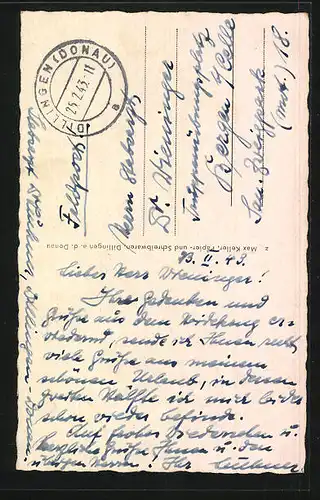 DILLINGEN (DONAU)
a
25.2.43.-11
Feldpost!
Herrn Stabsapoth.
Dr. Wieninger
Truppenübungsplatz
Bergen b/Celle
San. Zweigpark
18.
z Max Keller, Papier- und Schreibwaren, Dillingen a. d. Donau
23. II. 43.
Lieber Herr Wieninger!
Ihre Gedenken und
Grüße aus dem
sende ich Ihnen recht
viele Grüße aus meinem
schönen Urlaub, in dessen
zweiten Hälfte ich mich leider
schon wieder befinde.
Auf frohes Wiedersehen u.
herzliche Grüße Ihnen u. den
übrigen Herren! Ihr
Dillingen - Donau